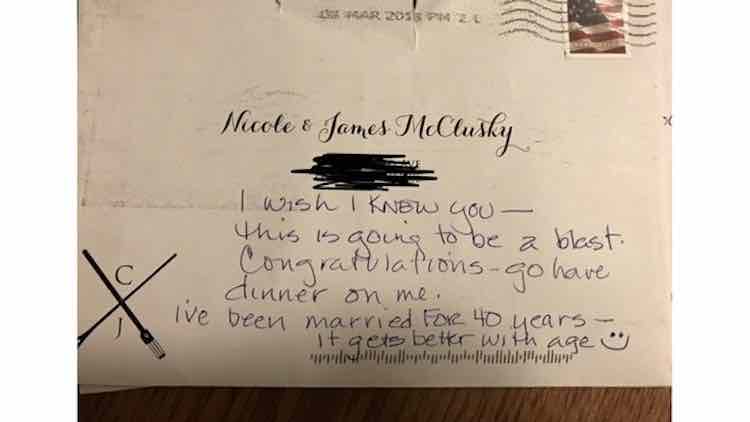 MAR 2018 PM 2 L
Nicole & James McClusky
I wish I KNEW you —
this is going to be a blast.
Congratulations - go have
dinner on me.
i've been married FOR 40 years —
it gets better with age
C
J